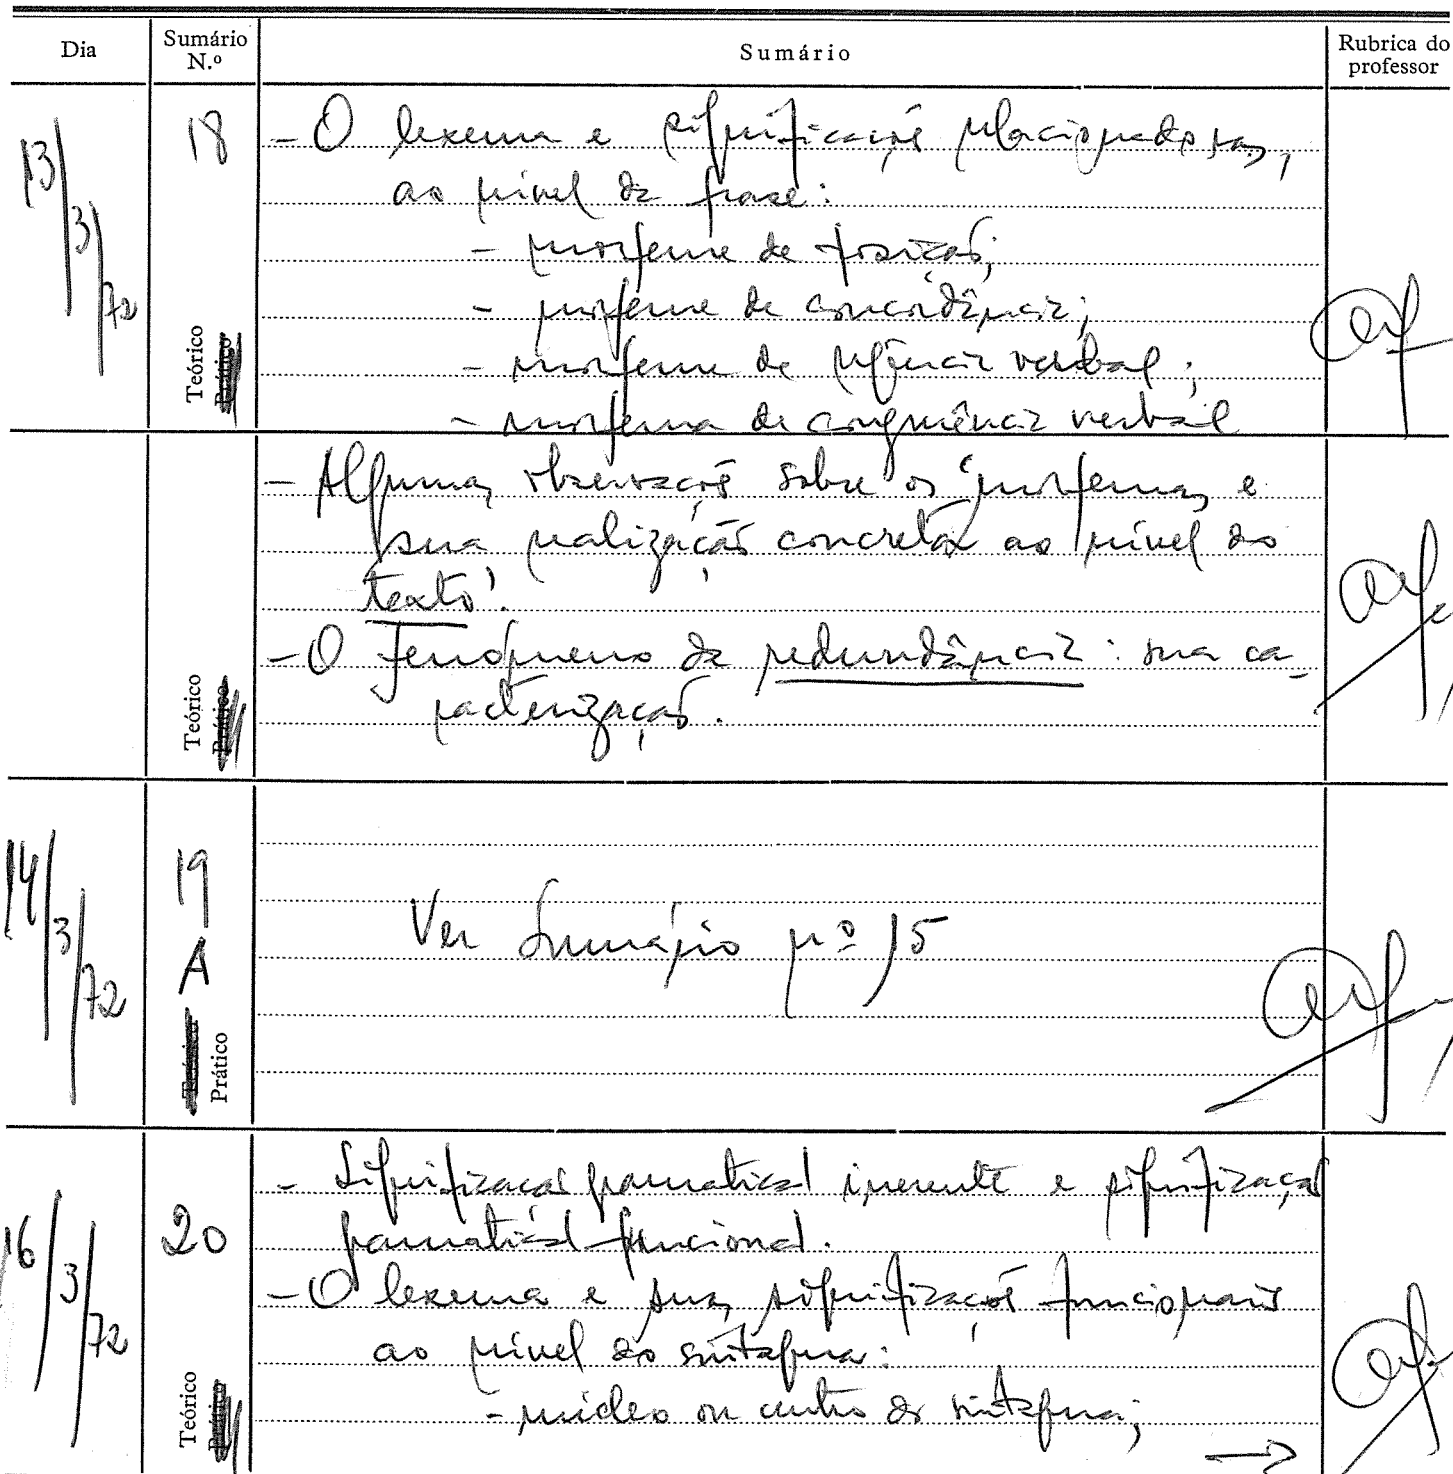 Dia
Sumário N.º
Sumário
Rubrica do professor
13/3/72
18
Teórico
Prático
- O lexema e significações relacionadoras,
ao nível da frase:
- morfema de posição;
- morfema de concordância;
- morfema de regência verbal;
- morfema de congruência verbal
Teórico
Prático
- Algumas observações sobre os 'morfemas e
sua realização concreta ao nível do
texto'.
- O fenómeno da redundância: sua ca-
racterização.
14/3/72
19
A
Teórico
Prático
Ver Sumário nº 15
16/3/72
20
Teórico
Prático
- Significação gramatical inerente e significação
gramatical funcional.
- O lexema e suas significações funcionais
ao nível do sintagma:
- núcleo ou centro do sintagma;
→